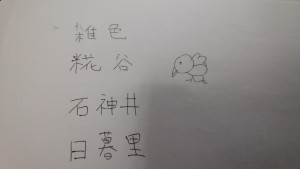 雑色
糀谷
石神井
日暮里